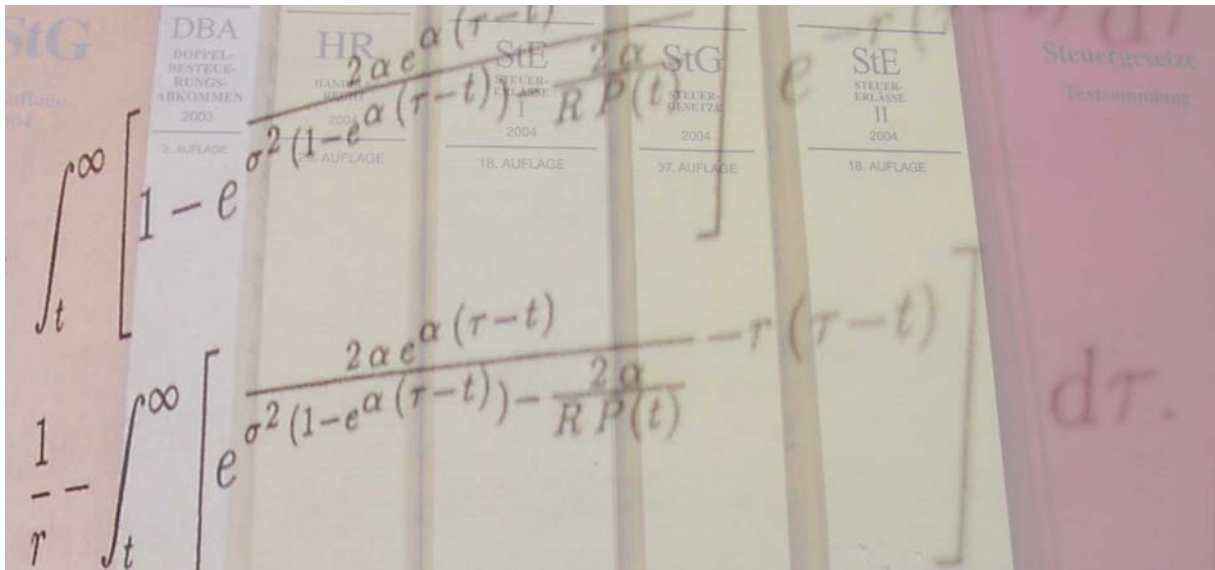 StG
2004
DBA
DOPPEL-
BESTEUE-
RUNGS-
ABKOMMEN
2003
2. AUFLAGE
HR
HANDELS-
RECHT
2004
AUFLAGE
StE
STEUER-
ERLÄSSE
I
2004
18. AUFLAGE
StG
STEUER-
GESETZE
2004
37. AUFLAGE
StE
STEUER-
ERLÄSSE
II
2004
18. AUFLAGE
Steuergesetze
Textsammlung
∫_t^∞ [1 − e^{2αe^{α(τ−t)} / (σ²(1−e^{α(τ−t)}) − 2α/(R P(t)))}] e^{−r(τ−t)} dτ
1/r − ∫_t^∞ [e^{2αe^{α(τ−t)} / (σ²(1−e^{α(τ−t)}) − 2α/(R P(t))) − r(τ−t)}] dτ.